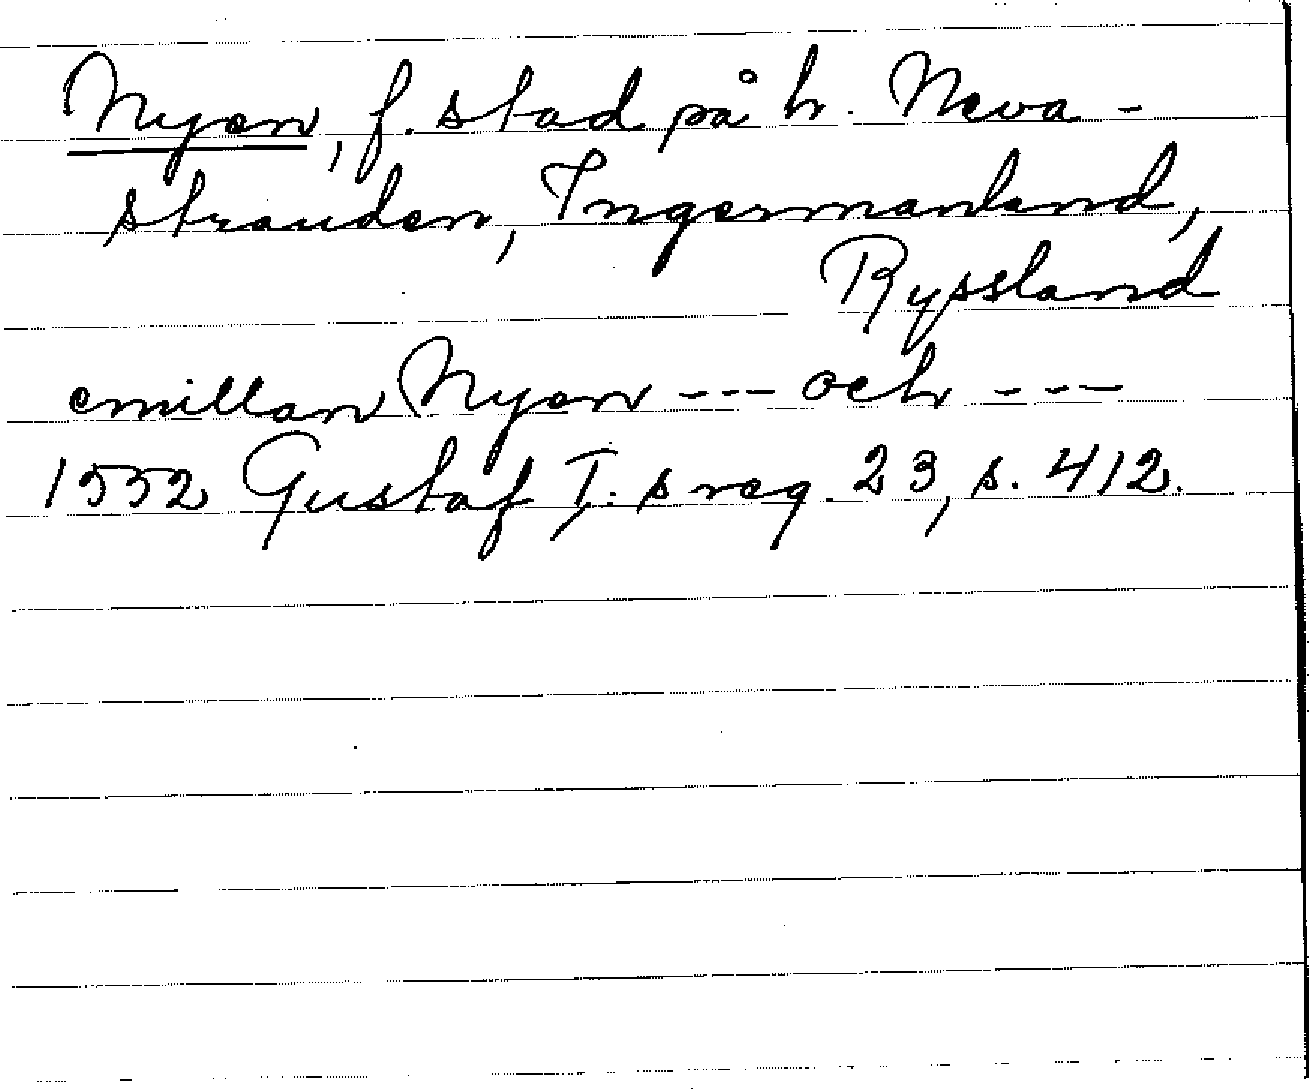 Nyen, f. stad på h. Neva-
stranden, Ingermanland,
Ryssland
emillan Nyen --- och ---
1552 Gustaf I:s reg. 23, s. 412.